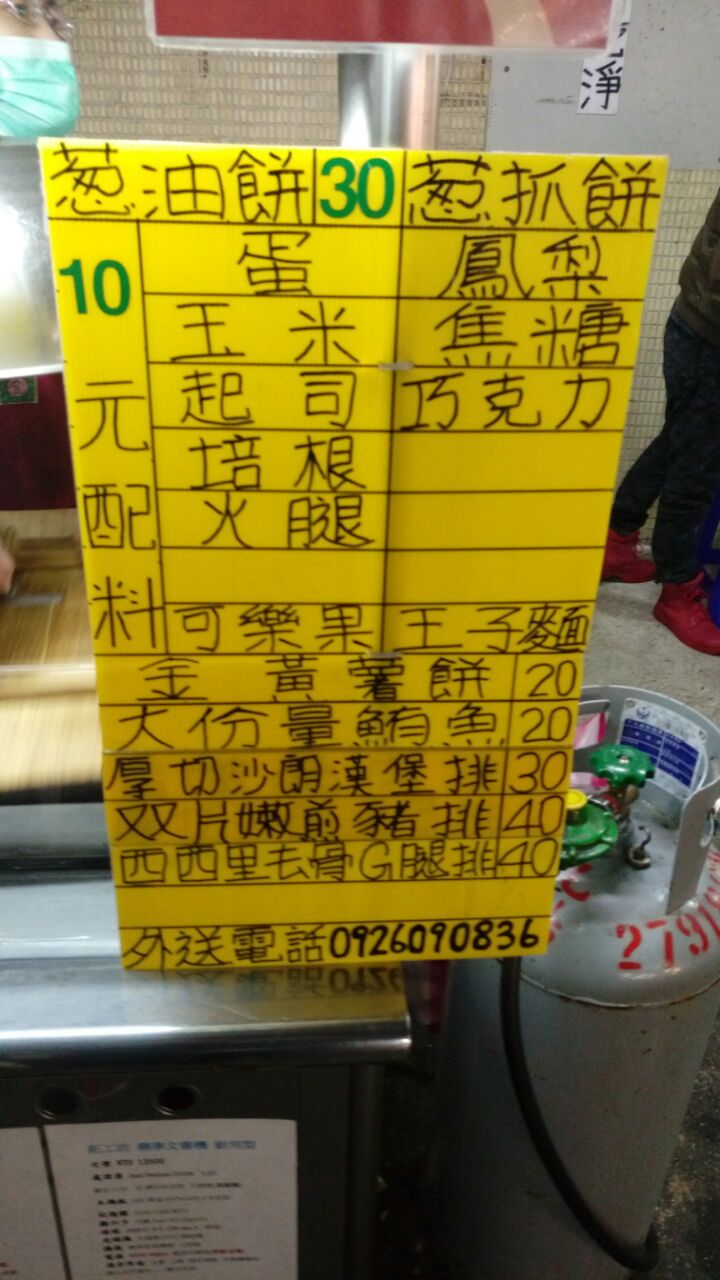 淨
葱油餅 30 葱抓餅
10元配料
蛋 鳳梨
玉米 焦糖
起司 巧克力
培根
火腿
可樂果 王子麵
金黃薯餅 20
大份量鮪魚 20
厚切沙朗漢堡排 30
双片嫩煎豬排 40
西西里去骨G腿排 40
外送電話0926090836
2791